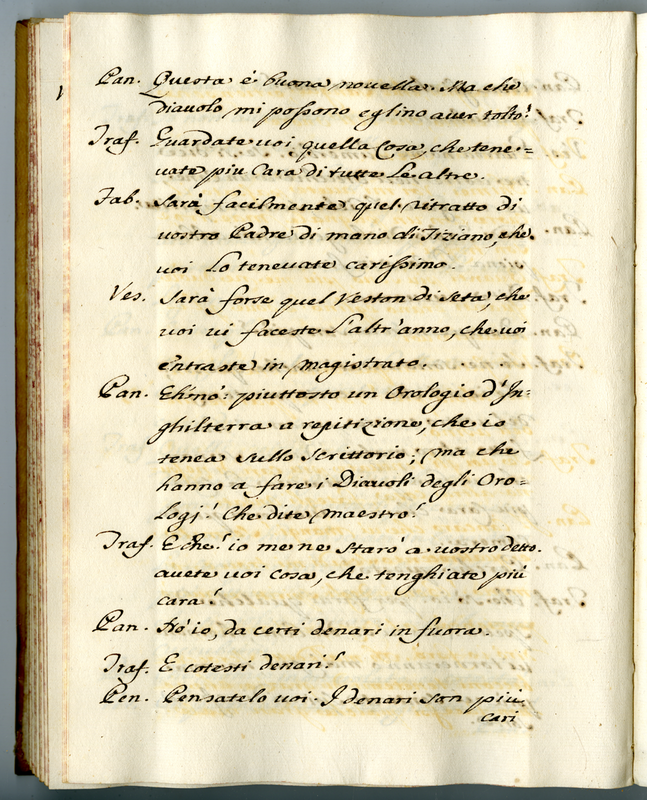 Pan. Questa è buona novella. Ma che
diavolo mi possono eglino aver tolto?
Traf. Guardate voi quella Cosa, che tene=
vate piu Cara di tutte Le altre.
Fab. Sarà facilmente quel ritratto di
vostro Padre di mano di Tiziano, che
voi Lo tenevate carissimo.
Ves. Sarà forse quel Veston di seta, che
voi vi faceste L'altr'anno, che voi
entraste in magistrato.
Pan. Eh nò: piuttosto un Orologio d'In=
ghilterra a repitizione, che io
tenea sullo scrittorio; ma che
hanno a fare i Diavoli degli Oro=
Logj? Che dite maestro?
Traf. E che? io me ne starò a vostro detto.
avete voi cosa, che tenghiate più
cara?
Pan. Hò io, da certi denari in fuora.
Traf. E cotesti denari?
Pan. Pensatelo voi. I denari son più
cari